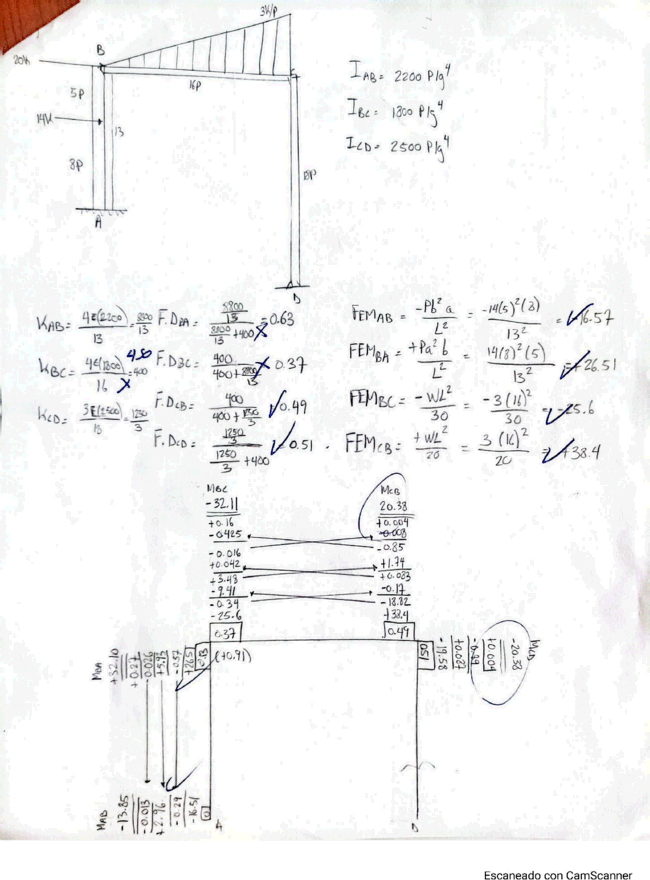 3k/P
B
20k
C
16P
5P
14k
13
8P
18P
A
D
I_AB = 2200 Plg^4
I_BC = 1800 Plg^4
I_CD = 2500 Plg^4
K_AB = 4E(2200)/13 = 8800/13
K_BC = 4E(1800)/16 = 400 450
F.D_BA = 8800/13 / (8800/13 + 400) = 0.63
F.D_BC = 400 / (400 + 8800/13) 0.37
F.D_CB = 400 / (400 + 1250/3) 0.49
F.D_CD = 1250/3 / (1250/3 + 400) = 0.51
FEM_AB = -Pb²a/L² = -14(5)²(8)/13² = -16.57
FEM_BA = +Pa²b/L² = 14(8)²(5)/13² = +26.51
FEM_BC = -WL²/30 = -3(16)²/30 = -25.6
FEM_CB = +WL²/20 = 3(16)²/20 = +38.4
M_BC
-32.11
+0.16
-0.425
-0.016
+0.042
+3.48
-9.41
-0.34
-25.6
0.37
M_CB
20.38
+0.004
-0.008
-0.85
+1.74
+0.083
-0.17
-18.82
+38.4
0.49
(+0.91)
M_BA
+32.10
+0.27
-0.026
+5.93
-0.57
+26.5
M_CD
-20.38
+0.004
+0.087
-19.58
0.51
M_AB
-13.85
-0.013
+2.96
-0.29
-16.57
0
A
D
Escaneado con CamScanner